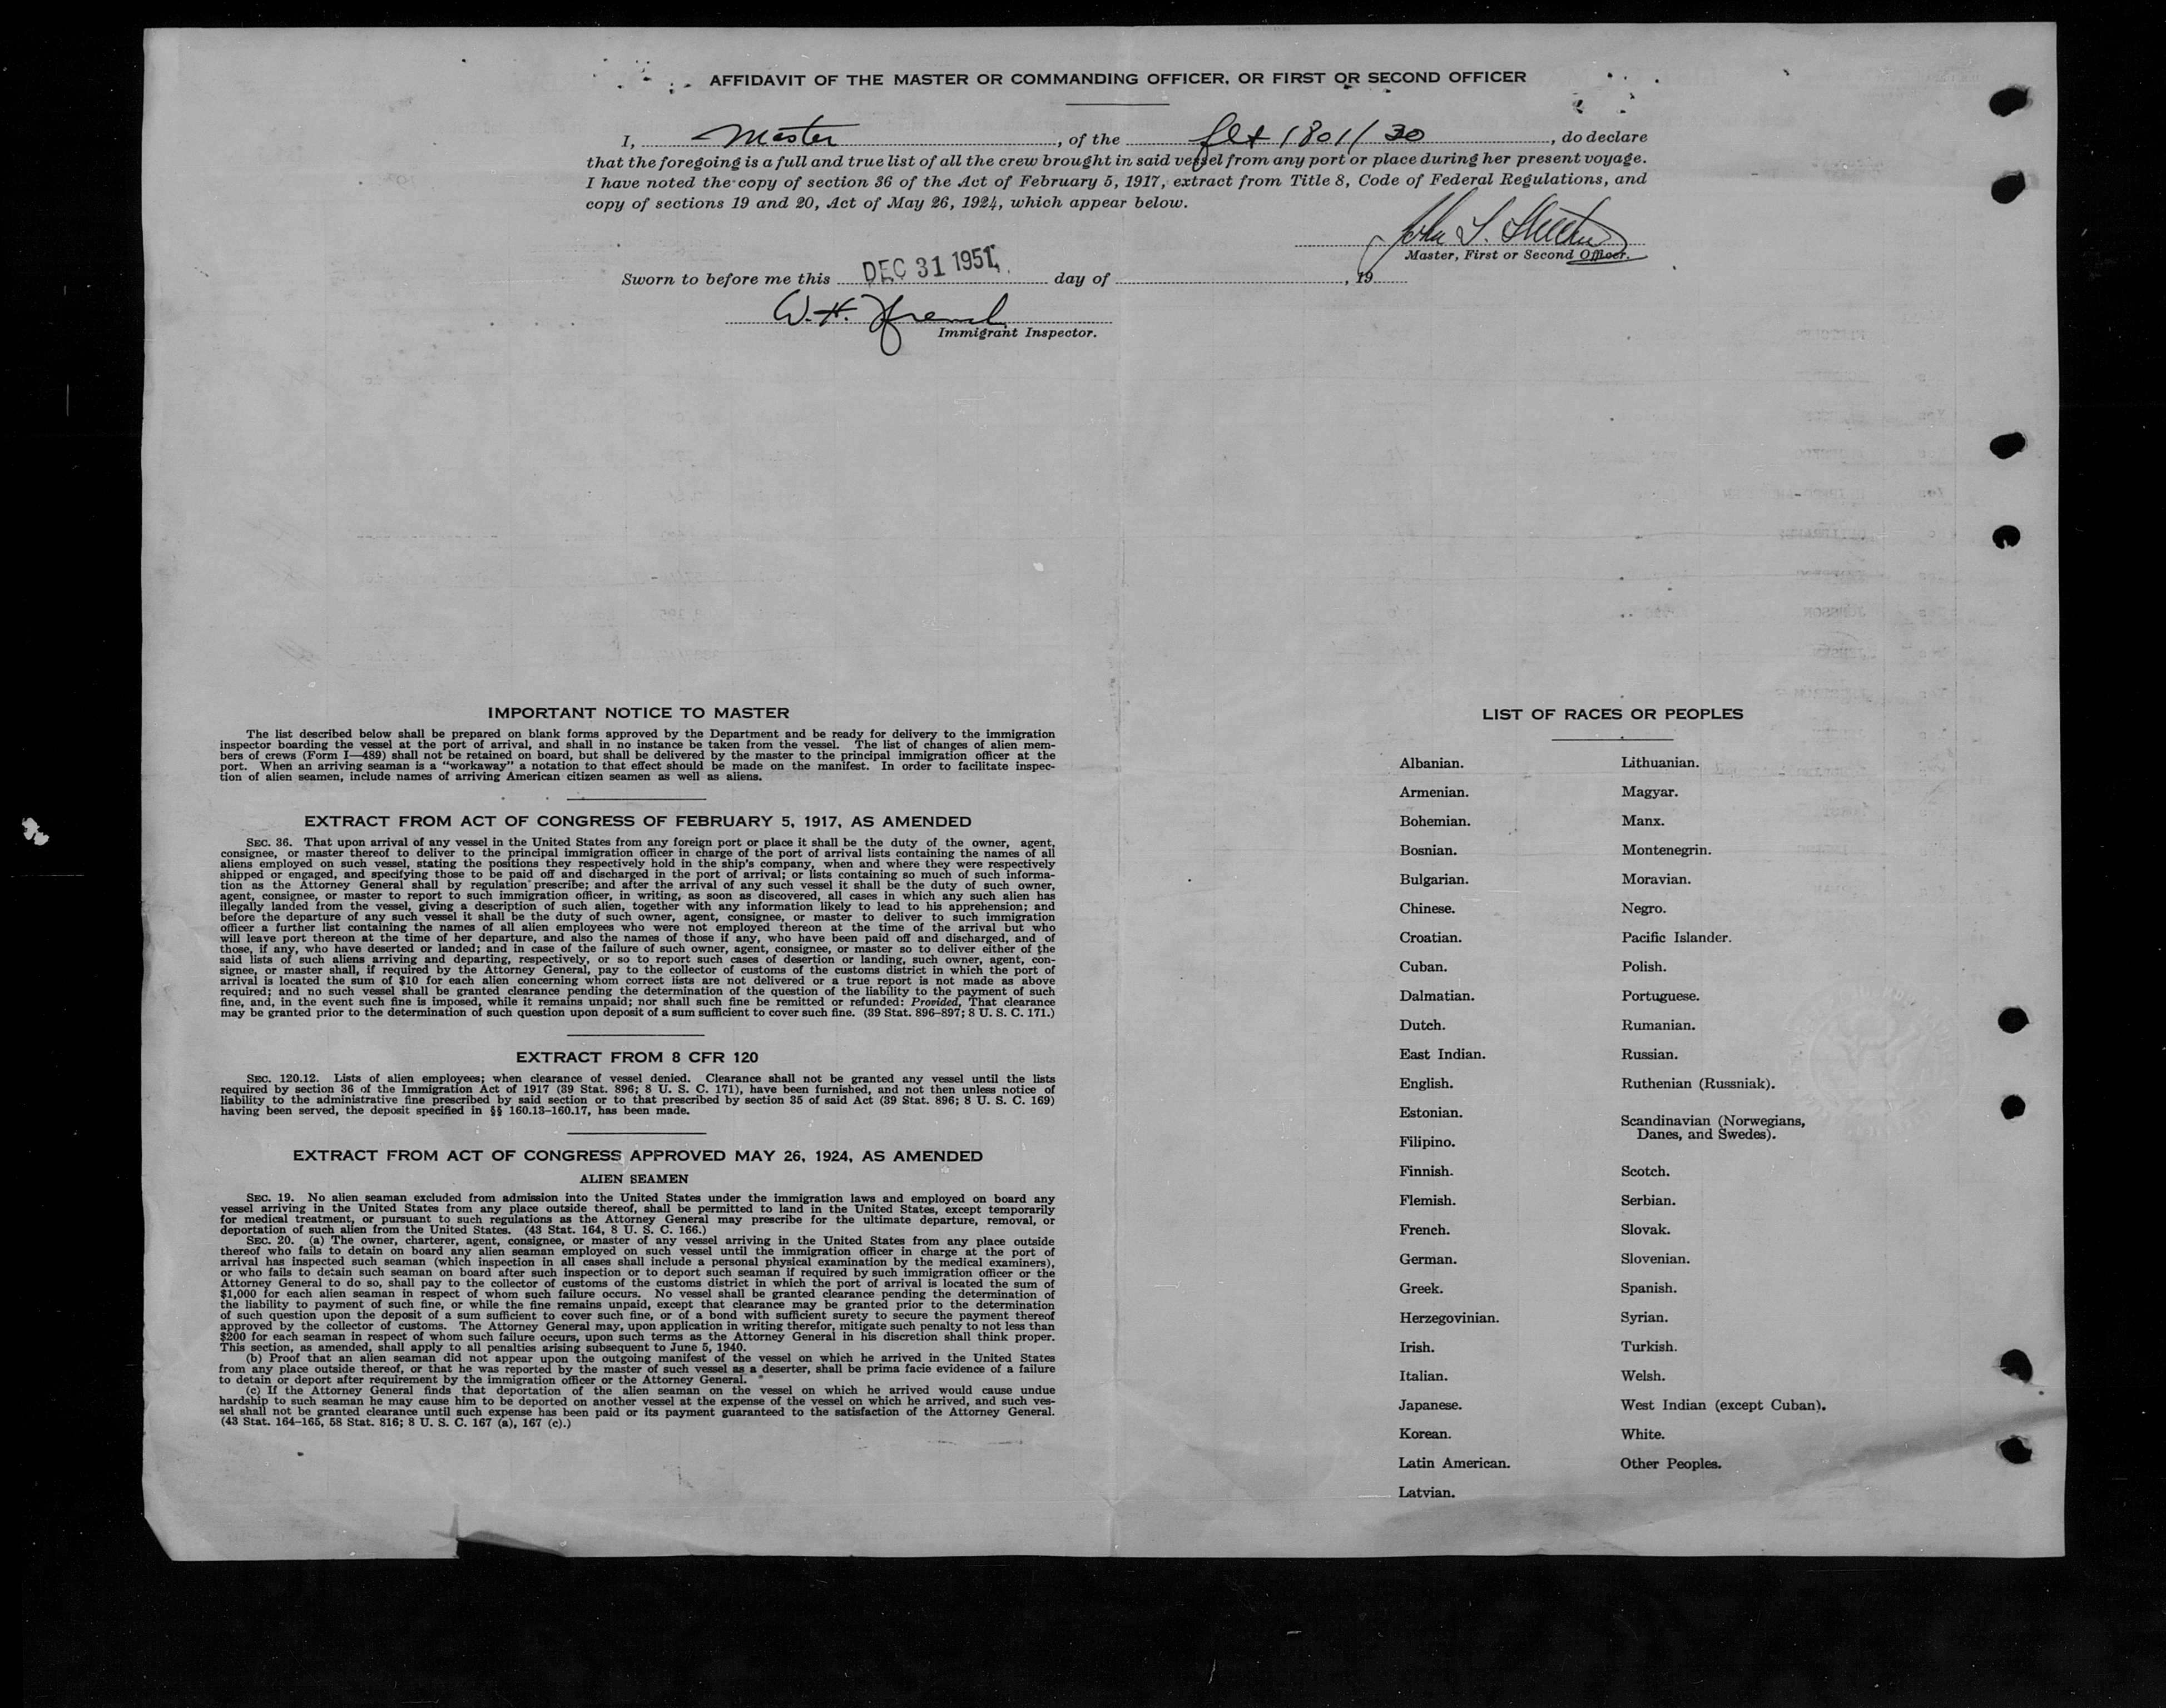 AFFIDAVIT OF THE MASTER OR COMMANDING OFFICER, OR FIRST OR SECOND OFFICER
I, Master, of the flt 1801/30, do declare
that the foregoing is a full and true list of all the crew brought in said vessel from any port or place during her present voyage.
I have noted the copy of section 36 of the Act of February 5, 1917, extract from Title 8, Code of Federal Regulations, and
copy of sections 19 and 20, Act of May 26, 1924, which appear below.
John S.
Master, First or Second Officer.
Sworn to before me this DEC 31 1951, day of , 19
W. H. French
Immigrant Inspector.
IMPORTANT NOTICE TO MASTER
The list described below shall be prepared on blank forms approved by the Department and be ready for delivery to the immigration
inspector boarding the vessel at the port of arrival, and shall in no instance be taken from the vessel. The list of changes of alien mem-
bers of crews (Form I—489) shall not be retained on board, but shall be delivered by the master to the principal immigration officer at the
port. When an arriving seaman is a "workaway" a notation to that effect should be made on the manifest. In order to facilitate inspec-
tion of alien seamen, include names of arriving American citizen seamen as well as aliens.
EXTRACT FROM ACT OF CONGRESS OF FEBRUARY 5, 1917, AS AMENDED
SEC. 36. That upon arrival of any vessel in the United States from any foreign port or place it shall be the duty of the owner, agent,
consignee, or master thereof to deliver to the principal immigration officer in charge of the port of arrival lists containing the names of all
aliens employed on such vessel, stating the positions they respectively hold in the ship's company, when and where they were respectively
shipped or engaged, and specifying those to be paid off and discharged in the port of arrival; or lists containing so much of such informa-
tion as the Attorney General shall by regulation prescribe; and after the arrival of any such vessel it shall be the duty of such owner,
agent, consignee, or master to report to such immigration officer, in writing, as soon as discovered, all cases in which any such alien has
illegally landed from the vessel, giving a description of such alien, together with any information likely to lead to his apprehension; and
before the departure of any such vessel it shall be the duty of such owner, agent, consignee, or master to deliver to such immigration
officer a further list containing the names of all alien employees who were not employed thereon at the time of the arrival but who
will leave port thereon at the time of her departure, and also the names of those if any, who have been paid off and discharged, and of
those, if any, who have deserted or landed; and in case of the failure of such owner, agent, consignee, or master so to deliver either of the
said lists of such aliens arriving and departing, respectively, or so to report such cases of desertion or landing, such owner, agent, con-
signee, or master shall, if required by the Attorney General, pay to the collector of customs of the customs district in which the port of
arrival is located the sum of $10 for each alien concerning whom correct lists are not delivered or a true report is not made as above
required; and no such vessel shall be granted clearance pending the determination of the question of the liability to the payment of such
fine, and, in the event such fine is imposed, while it remains unpaid; nor shall such fine be remitted or refunded: Provided, That clearance
may be granted prior to the determination of such question upon deposit of a sum sufficient to cover such fine. (39 Stat. 896–897; 8 U. S. C. 171.)
EXTRACT FROM 8 CFR 120
SEC. 120.12. Lists of alien employees; when clearance of vessel denied. Clearance shall not be granted any vessel until the lists
required by section 36 of the Immigration Act of 1917 (39 Stat. 896; 8 U. S. C. 171), have been furnished, and not then unless notice of
liability to the administrative fine prescribed by said section or to that prescribed by section 35 of said Act (39 Stat. 896; 8 U. S. C. 169)
having been served, the deposit specified in §§ 160.13–160.17, has been made.
EXTRACT FROM ACT OF CONGRESS APPROVED MAY 26, 1924, AS AMENDED
ALIEN SEAMEN
SEC. 19. No alien seaman excluded from admission into the United States under the immigration laws and employed on board any
vessel arriving in the United States from any place outside thereof, shall be permitted to land in the United States, except temporarily
for medical treatment, or pursuant to such regulations as the Attorney General may prescribe for the ultimate departure, removal, or
deportation of such alien from the United States. (43 Stat. 164, 8 U. S. C. 166.)
SEC. 20. (a) The owner, charterer, agent, consignee, or master of any vessel arriving in the United States from any place outside
thereof who fails to detain on board any alien seaman employed on such vessel until the immigration officer in charge at the port of
arrival has inspected such seaman (which inspection in all cases shall include a personal physical examination by the medical examiners),
or who fails to detain such seaman on board after such inspection or to deport such seaman if required by such immigration officer or the
Attorney General to do so, shall pay to the collector of customs of the customs district in which the port of arrival is located the sum of
$1,000 for each alien seaman in respect of whom such failure occurs. No vessel shall be granted clearance pending the determination of
the liability to payment of such fine, or while the fine remains unpaid, except that clearance may be granted prior to the determination
of such question upon the deposit of a sum sufficient to cover such fine, or of a bond with sufficient surety to secure the payment thereof
approved by the collector of customs. The Attorney General may, upon application in writing therefor, mitigate such penalty to not less than
$200 for each seaman in respect of whom such failure occurs, upon such terms as the Attorney General in his discretion shall think proper.
This section, as amended, shall apply to all penalties arising subsequent to June 5, 1940.
(b) Proof that an alien seaman did not appear upon the outgoing manifest of the vessel on which he arrived in the United States
from any place outside thereof, or that he was reported by the master of such vessel as a deserter, shall be prima facie evidence of a failure
to detain or deport after requirement by the immigration officer or the Attorney General.
(c) If the Attorney General finds that deportation of the alien seaman on the vessel on which he arrived would cause undue
hardship to such seaman he may cause him to be deported on another vessel at the expense of the vessel on which he arrived, and such ves-
sel shall not be granted clearance until such expense has been paid or its payment guaranteed to the satisfaction of the Attorney General.
(43 Stat. 164–165, 58 Stat. 816; 8 U. S. C. 167 (a), 167 (c).)
LIST OF RACES OR PEOPLES
Albanian.
Armenian.
Bohemian.
Bosnian.
Bulgarian.
Chinese.
Croatian.
Cuban.
Dalmatian.
Dutch.
East Indian.
English.
Estonian.
Filipino.
Finnish.
Flemish.
French.
German.
Greek.
Herzegovinian.
Irish.
Italian.
Japanese.
Korean.
Latin American.
Latvian.
Lithuanian.
Magyar.
Manx.
Montenegrin.
Moravian.
Negro.
Pacific Islander.
Polish.
Portuguese.
Rumanian.
Russian.
Ruthenian (Russniak).
Scandinavian (Norwegians,
Danes, and Swedes).
Scotch.
Serbian.
Slovak.
Slovenian.
Spanish.
Syrian.
Turkish.
Welsh.
West Indian (except Cuban).
White.
Other Peoples.